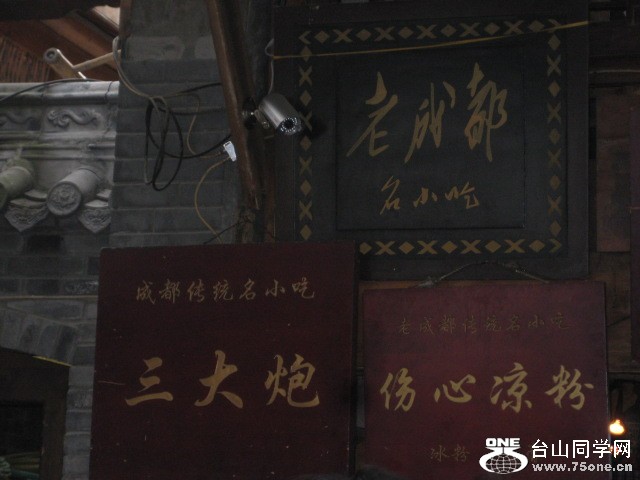 老成都
名小吃
成都传统名小吃
三大炮
老成都传统名小吃
伤心凉粉
冰粉
ONE
台山同学网
www.75one.cn